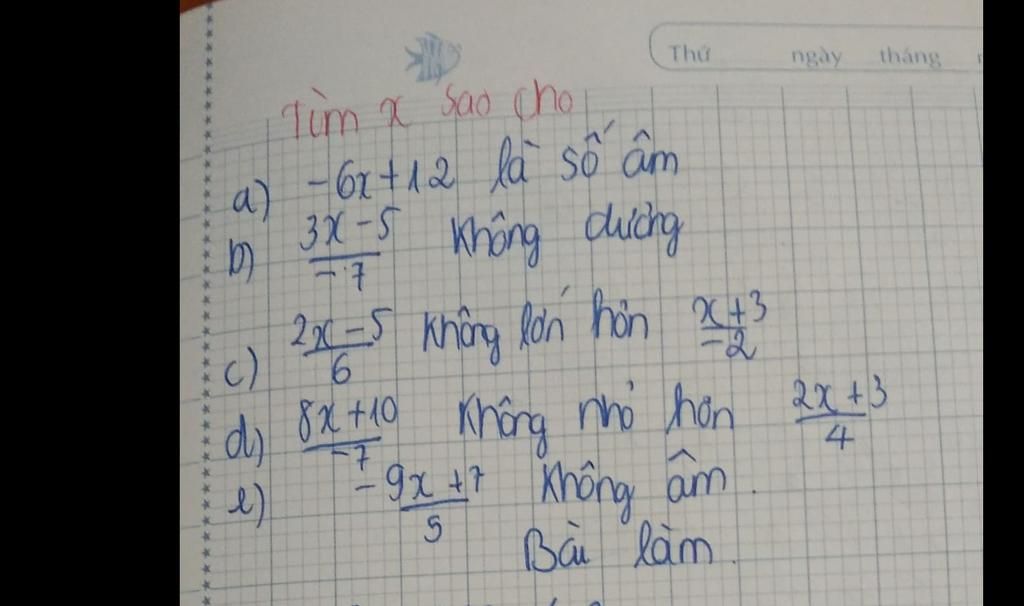 Thứ ngày tháng
Tìm x sao cho
a) -6x+12 là số âm
b) \frac{3x-5}{-7} không dương
c) \frac{2x-5}{6} không lớn hơn \frac{x+3}{-2}
d) \frac{8x+10}{-7} không nhỏ hơn \frac{2x+3}{4}
e) \frac{-9x+7}{5} không âm.
Bài làm.